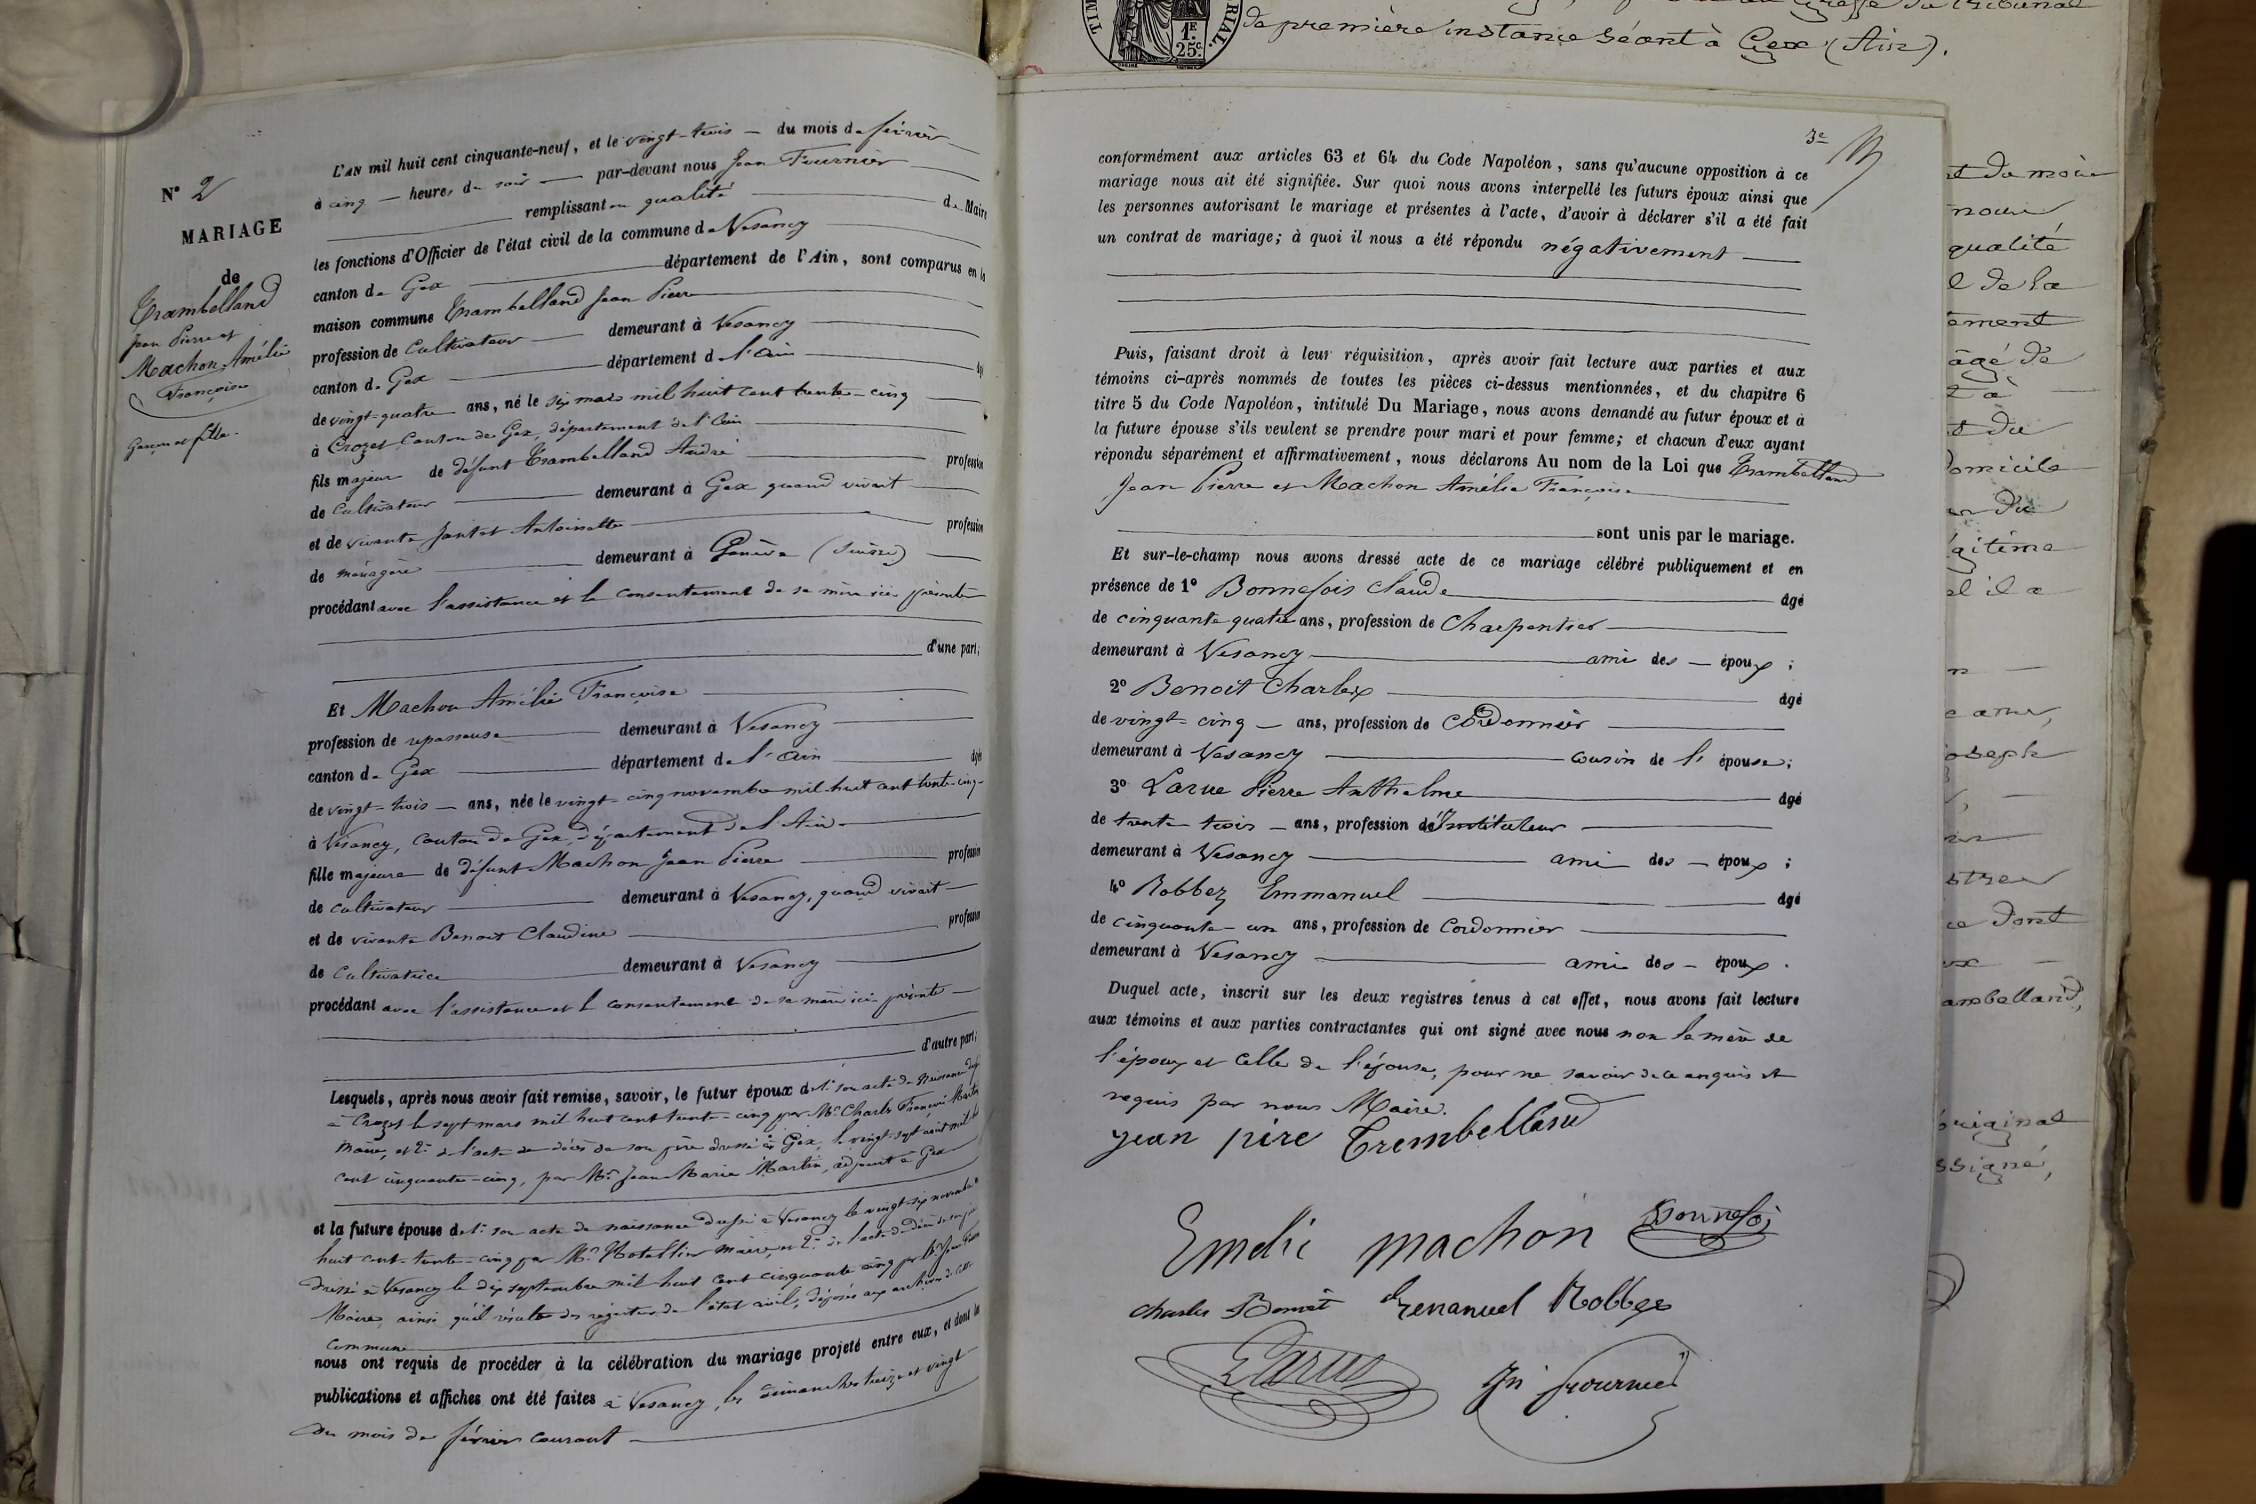 N° 2
MARIAGE
de
Trambelland
Jean Pierre et
Machon Amélie
Françoise
Garçon et fille.
L'AN mil huit cent cinquante-neuf, et le vingt-trois du mois de février
à cinq heures du soir par-devant nous Jean Fournier
remplissant en qualité de Maire
les fonctions d'Officier de l'état civil de la commune de Vesancy
canton de Gex département de l'Ain, sont comparus en la
maison commune Trambelland Jean Pierre
profession de Cultivateur demeurant à Vesancy
canton de Gex département de l'Ain âgé
de vingt-quatre ans, né le six mars mil huit cent trente-cinq
à Crozet Canton de Gex, département de l'Ain
fils majeur de défunt Trambelland André profession
de Cultivateur demeurant à Gex quand vivait
et de vivante Jantet Antoinette profession
de ménagère demeurant à Genève (Suisse)
procédant avec l'assistance et le consentement de sa mère ici présente
d'une part;
Et Machon Amélie Françoise
profession de repasseuse demeurant à Vesancy
canton de Gex département de l'Ain âgée
de vingt-trois ans, née le vingt-cinq novembre mil huit cent trente-cinq
à Vesancy, canton de Gex, département de l'Ain
fille majeure de défunt Machon Jean Pierre profession
de cultivateur demeurant à Vesancy, quand vivait
et de vivante Benoit Claudine profession
de Cultivatrice demeurant à Vesancy
procédant avec l'assistance et le consentement de sa mère ici présente
d'autre part;
Lesquels, après nous avoir fait remise, savoir, le futur époux de 1° son acte de naissance
à Crozet le sept mars mil huit cent trente-cinq par Mr Charles François Martin
maire, et 2° de l'acte de décès de son père dressé à Gex, le vingt-sept août mil huit
cent cinquante-cinq, par Mr Jean Marie Martin, adjoint à Gex
et la future épouse de 1° son acte de naissance dressé à Vesancy le vingt-six novembre
huit cent trente-cinq par Mr maire, et 2° de l'acte de décès de son père
dressé à Vesancy le dix septembre mil huit cent cinquante cinq par Mr Jean
Maire, ainsi qu'il résulte des registres de l'état civil, déposés aux archives de cette
commune
nous ont requis de procéder à la célébration du mariage projeté entre eux, et dont les
publications et affiches ont été faites à Vesancy, les dimanches treize et vingt
du mois de février courant
3e
conformément aux articles 63 et 64 du Code Napoléon, sans qu'aucune opposition à ce
mariage nous ait été signifiée. Sur quoi nous avons interpellé les futurs époux ainsi que
les personnes autorisant le mariage et présentes à l'acte, d'avoir à déclarer s'il a été fait
un contrat de mariage; à quoi il nous a été répondu négativement
Puis, faisant droit à leur réquisition, après avoir fait lecture aux parties et aux
témoins ci-après nommés de toutes les pièces ci-dessus mentionnées, et du chapitre 6
titre 5 du Code Napoléon, intitulé Du Mariage, nous avons demandé au futur époux et à
la future épouse s'ils veulent se prendre pour mari et pour femme; et chacun d'eux ayant
répondu séparément et affirmativement, nous déclarons Au nom de la Loi que Trambelland
Jean Pierre et Machon Amélie Françoise
sont unis par le mariage.
Et sur-le-champ nous avons dressé acte de ce mariage célébré publiquement et en
présence de 1° Bonnefois Claude âgé
de cinquante quatre ans, profession de Charpentier
demeurant à Vesancy ami des époux;
2° Benoit Charles âgé
de vingt-cinq ans, profession de Cordonnier
demeurant à Vesancy cousin de l'épouse;
3° Larue Pierre Anthelme âgé
de trente trois ans, profession d'Instituteur
demeurant à Vesancy ami des époux;
4° Robbez Emmanuel âgé
de cinquante-un ans, profession de Cordonnier
demeurant à Vesancy ami des époux.
Duquel acte, inscrit sur les deux registres tenus à cet effet, nous avons fait lecture
aux témoins et aux parties contractantes qui ont signé avec nous non la mère de
l'époux et celle de l'épouse, pour ne savoir de ce enquis et
requis par nous Maire.
jean pire Trembelland
Emelie machon Bonnefoi
Charles Benoit Emanuel Robbez
Larue Jn fournier
TIM
RIAL.
1F.
25c.
de première instance séant à Gex (Ain).
nous
qualité
de la
âgé de
à
du
domicile
du
il a
Joseph
dont
ambelland,
original
ssigné,